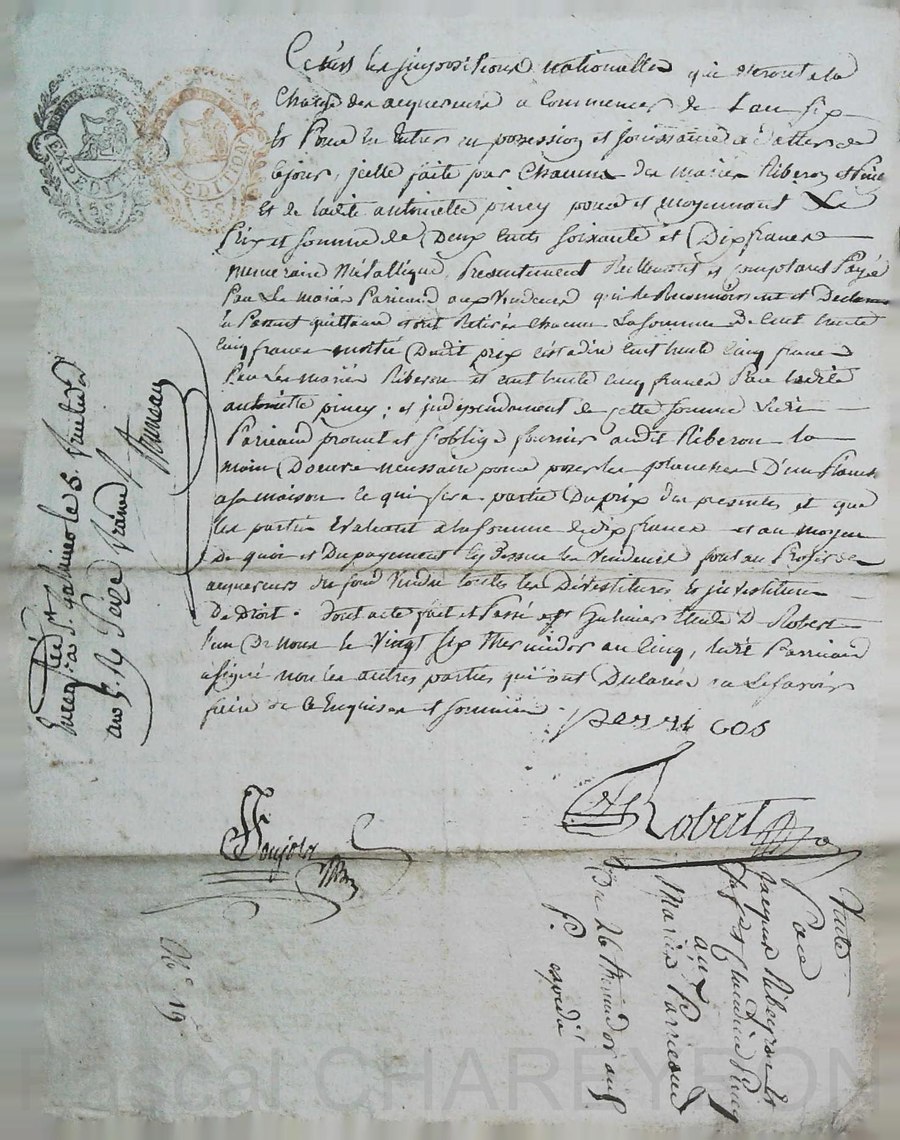 les impositions nationalles qui seront a la
Charge des acquereurs a Commencer de l'an six
et Pour en Entrer en possession et jouissance a datter de
ce jour, jcelle faite par Chacun des mariés Riberon et Piney
Et de ladite antoinette piney pour et moyennant Le
Prix et Somme de Deux Cents soixante et Dix francs
numeraire Metallique, Presentement Reellement et comptant Payé
Par Le marié Parieaud aux Vendeurs qui le Reconnoissent et Declarent
En Portant quittance avoir Retirés Chacun La somme de Cent trente
Cinq francs moitié Dudit prix C'est a dire Cent trente Cinq francs
Par Les mariés Riberon et Cent trente Cinq francs Par ladite
antoinette piney ; et independament de cette somme Ledit
Parieaud promet et s'oblige fournir audit Riberon la
main Doeuvre necessaire pour poser les planches D'un
a sa maison ce qui sera partie Du prix des presentes et que
les parties Evaluent a la somme de dix francs et au moyen
De quoi et Du payement Cy Dessus les Vendeurs font au Profit des
acquereurs du fond Vendu toutes les Devestitures et jnvestitures
De Droit. Dont acte fait et Passé a St galmier Etude D Robert
l'un De nous le Vingt Six thermidor an Cinq, ledit Parrieaud
a signé non les autres parties qui ont Declarés ne Le savoir
faire de ce Enquises et sommées.
Robert
EXPEDITION
EXPEDITION
Enregistré a St galmier le 5 fructidor
an 5. R Seize francs
No 19
Vente
Par
Jacques Ribeyron et
Piney
aux
Mariés Parrieaud
Du 26 thermidor an 5
P. expedié
Pascal CHAREYRON